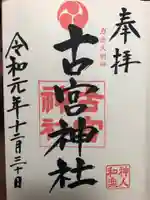 奉拝
古宮神社
令和元年十二月三十日
神人和楽